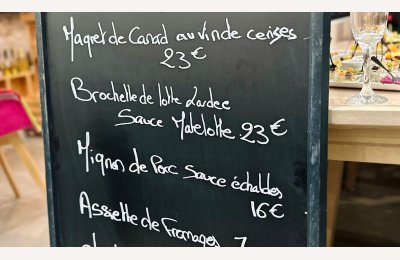 Magret de Canard au vin de cerises
23€
Brochette de lotte Lardée
Sauce Matelotte 23€
Mignon de Porc Sauce échalotes
16€
Assiette de Fromages 7